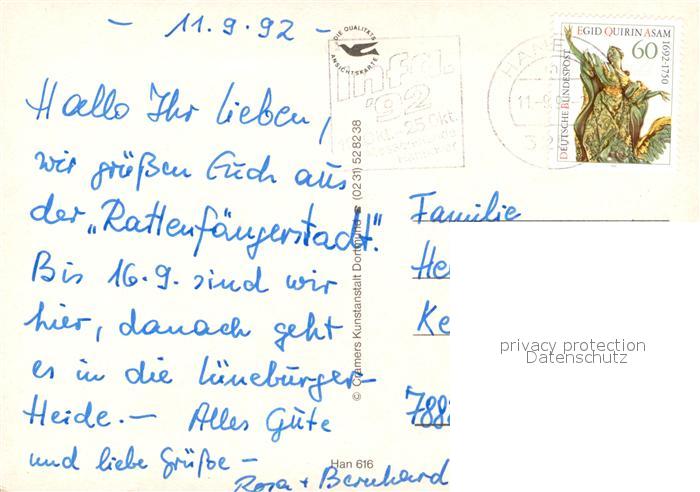 - 11.9.92 -
Hallo Ihr lieben,
wir grüßen Euch aus
der „Rattenfängerstadt".
Bis 16.9. sind wir
hier, danach geht
es in die Lüneburger-
Heide. - Alles Gute
und liebe Grüße -
Rosa + Bernhard
DIE QUALITÄTS
ANSICHTSKARTE
infa
'92
© Cramers Kunstanstalt Dortmund ☎ (0231) 528238
Han 616
EGID QUIRIN ASAM
1692-1750
60
DEUTSCHE BUNDESPOST
Familie
privacy protection
Datenschutz